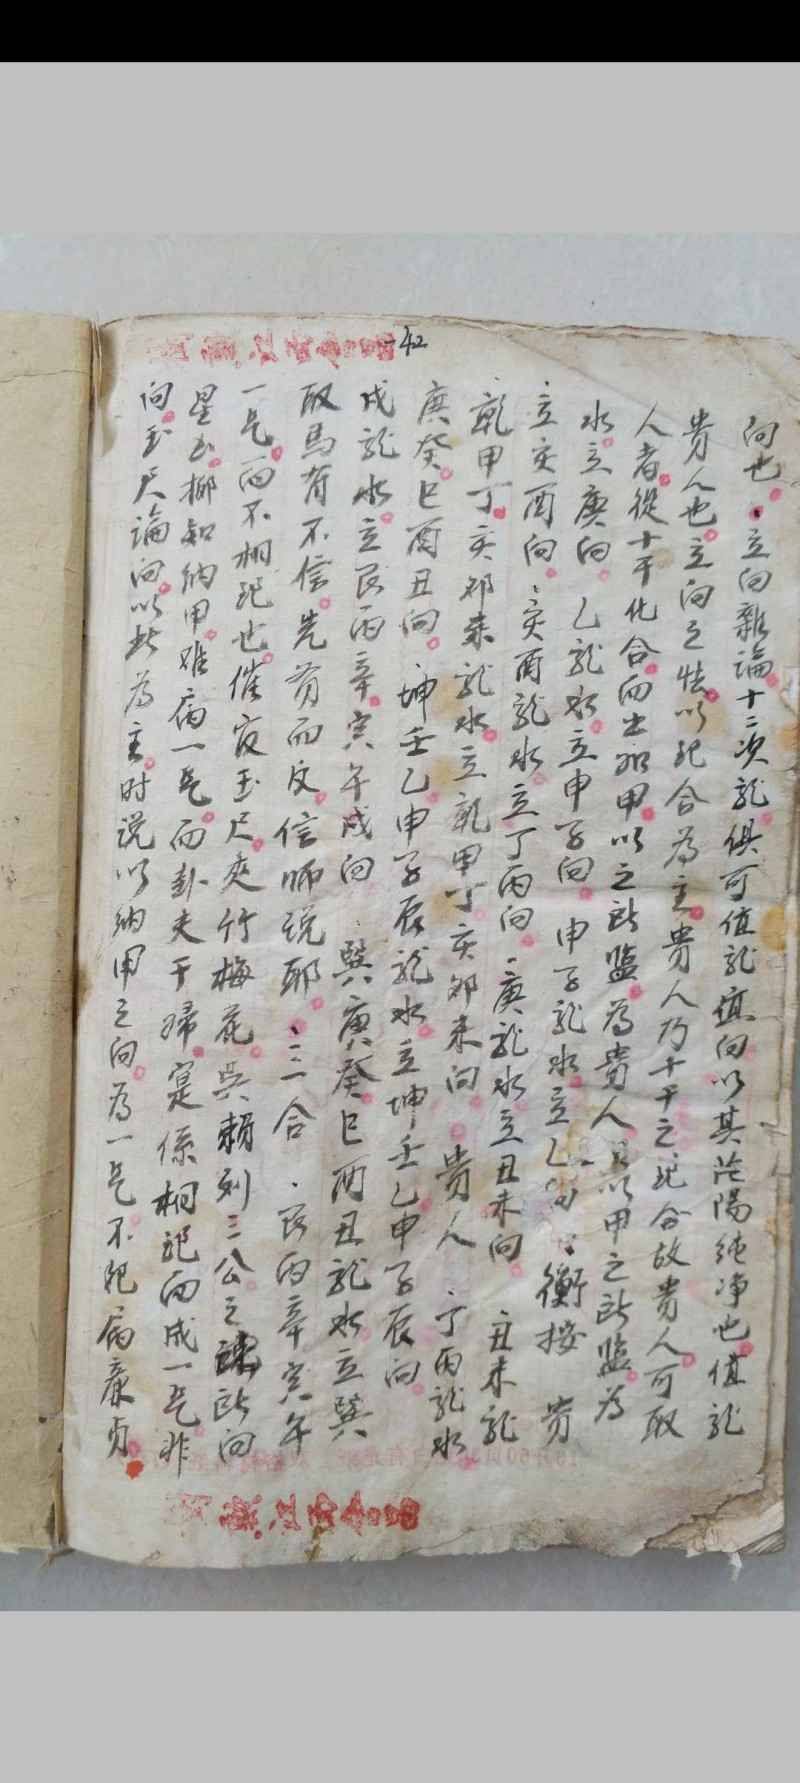 42
向也、立向雜論十二次龍俱可值龍值向以其陰陽純净也值龍
貴人也立向之法以配合為主貴人乃十干之配合故貴人可取
人者從十干化合而出如甲以之酉监為貴人以甲之酉监為
水立庚向 乙龍水立申子向 申子龍水立乙向、衡按 貴
立亥酉向、亥酉龍水立丁丙向、庚龍水立丑未向 丑未龍
乾甲丁亥卯未龍水立乾甲丁亥卯未向 貴人 丁丙龍水
庚癸巳酉丑向、坤壬乙申子辰龍水立坤壬乙申子辰向
戌龍水立艮丙辛寅午戌向、巽庚癸巳酉丑龍水立巽
取馬有不信先有而反信師説耶、三合、艮丙辛寅午
一氣而不相配也催官玉尺夾竹梅花吴賴列三公之訣向
星玉揶知納甲雖病一氣而卦夫于婦寔係相配而成一氣非
向玉尺論向以此為主时说以納甲之向為一氣不犯病廉貞